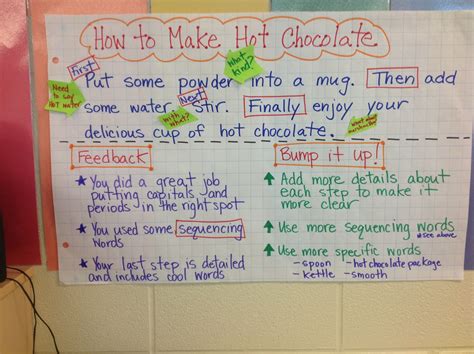 How to Make Hot Chocolate
First
What kind?
Need to say HOT water
Put some powder into a mug. Then add
some water. Next stir. Finally enjoy your
With what?
What about marshmallows?
delicious cup of hot chocolate.
Feedback
★ You did a great job
putting capitals and
periods in the right spot
★ You used some sequencing
words
★ Your last step is detailed
and includes cool words
Bump it up!
↑ Add more details about
each step to make it
more clear
↑ Use more sequencing words
★see above
↑ Use more specific words
- spoon - hot chocolate package
- kettle - smooth